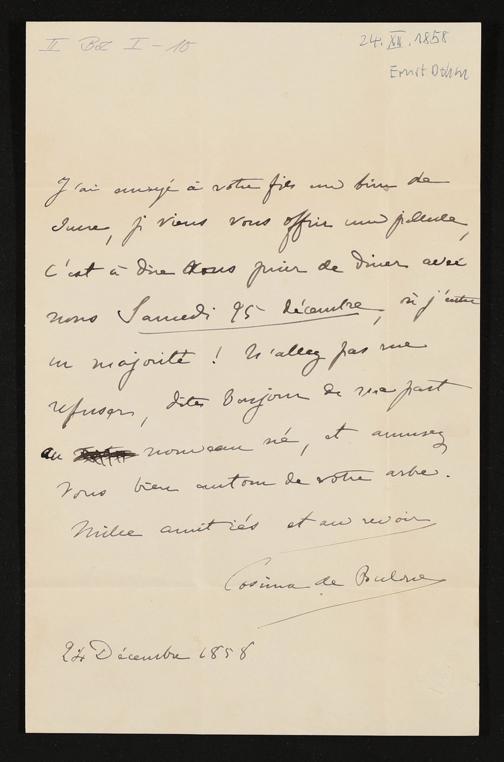 II Bü I - 10
24. XII. 1858
Ernst Dohm
J'ai envoyé à votre fils un bien de
sucre, je viens vous offrir une pillule,
C'est à dire vous prier de diner avec
nous Samedi 25 décembre, où j'entre
en majorité ! N'allez pas me
refuser, dites bonjour de ma part
au nouveau né, et amusez
vous bien autour de votre arbre.
Mille amitiés et au revoir
Cosima de Bulow
24 Décembre 1858